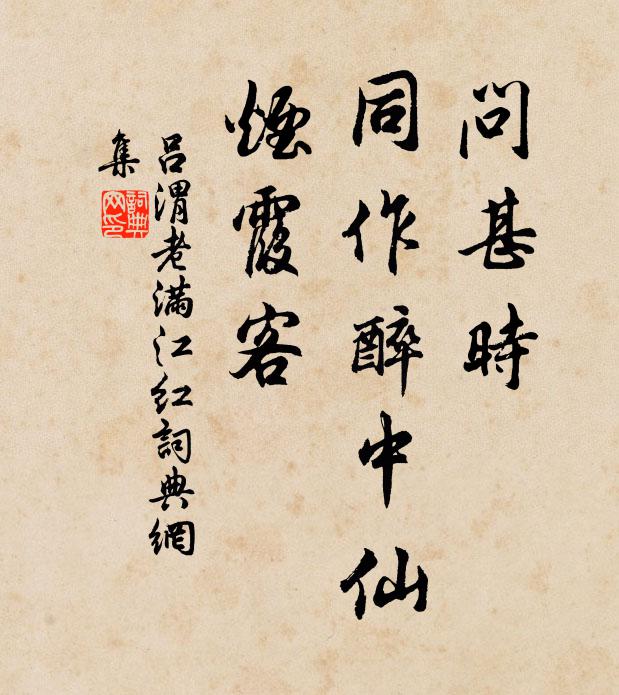 問甚時
同作醉中仙
煙霞客
吕渭老滿江红詞典網
集
詞典
网印